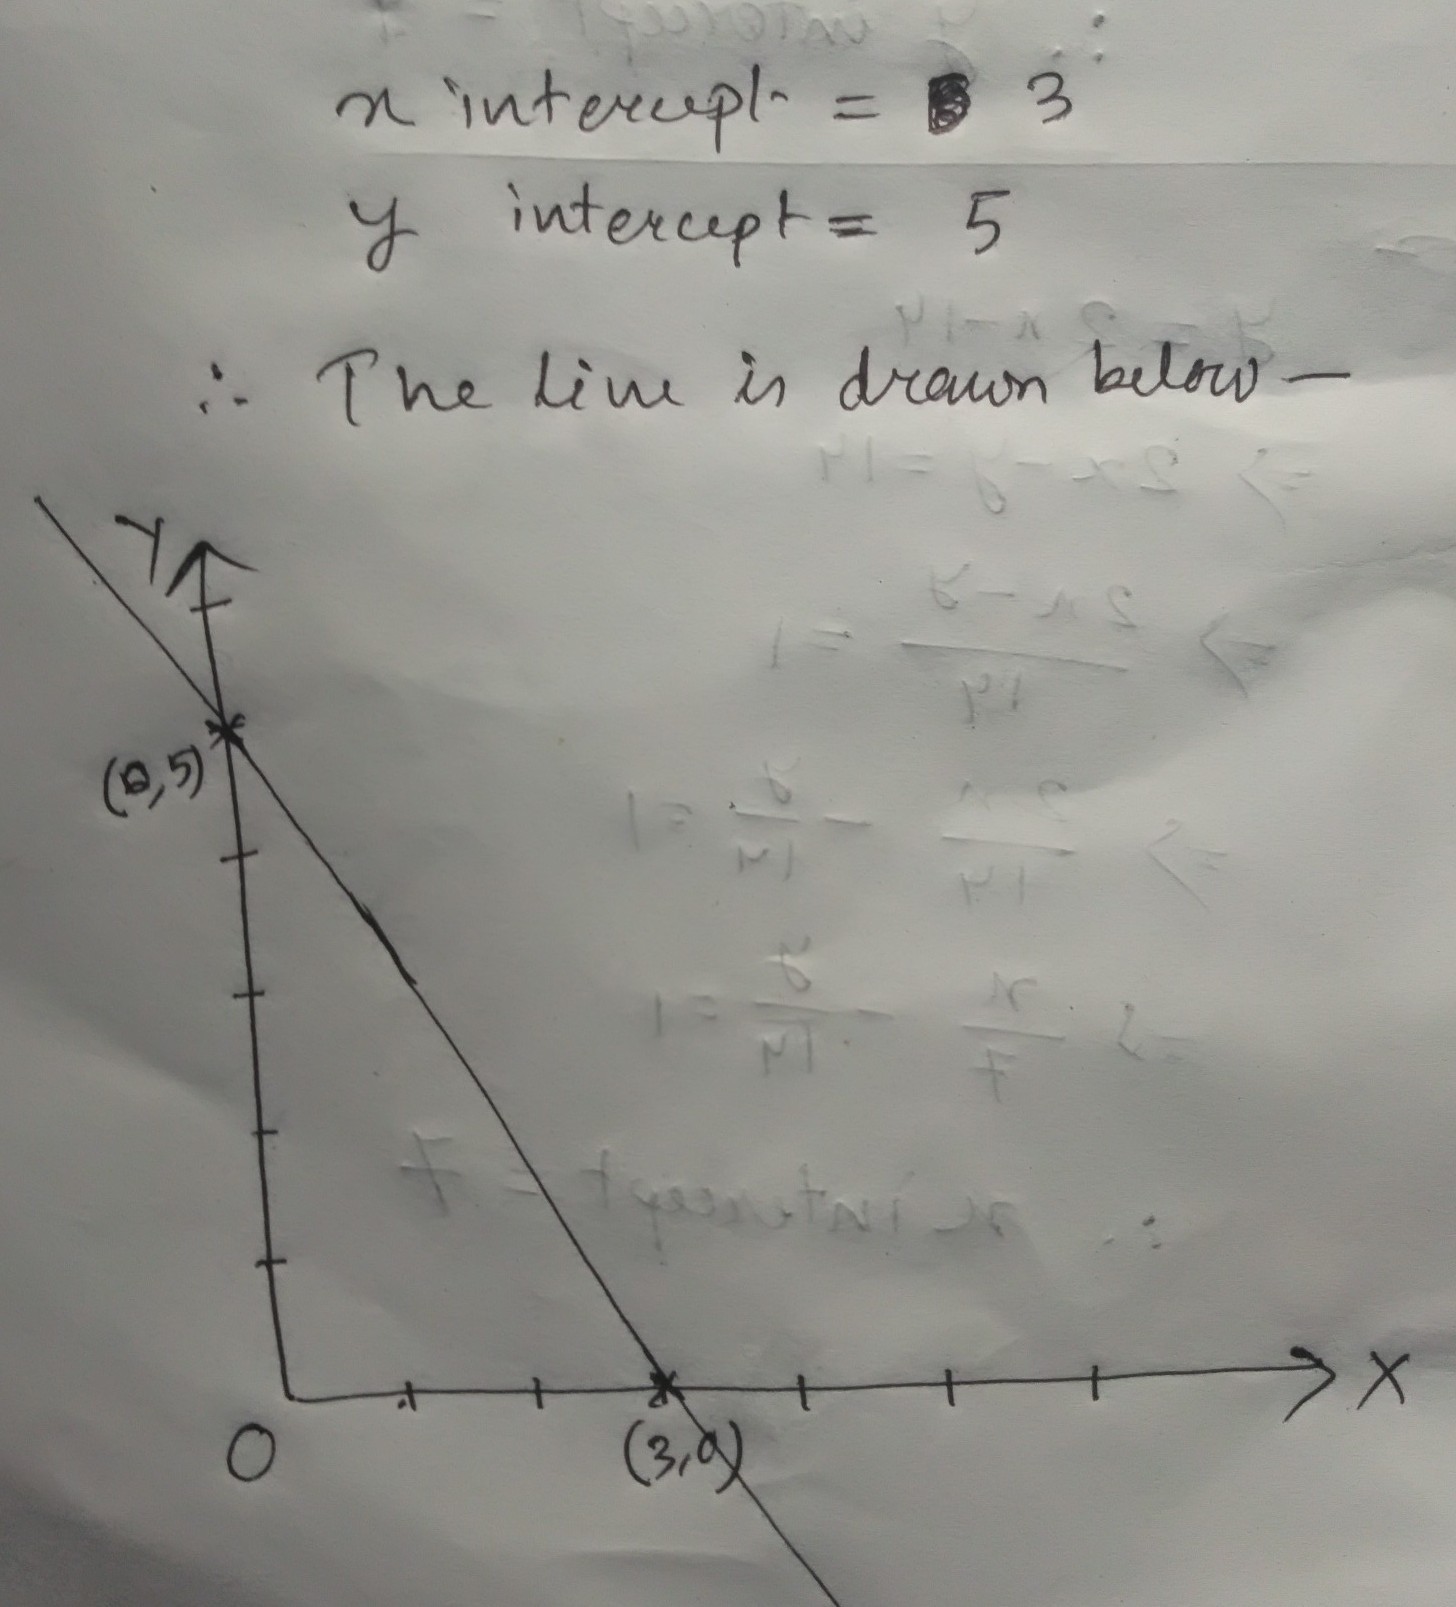 x intercept = 3
y intercept = 5
∴ The line is drawn below —
Y
(0,5)
O
(3,0)
X